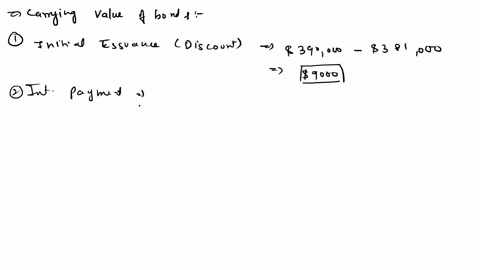 ⇒ Carrying Value of bonds :-
① Initial Issuance (Discount) ⇒ $ 390,000 - $ 381,000
⇒ $9000
② Int. Payment ⇒